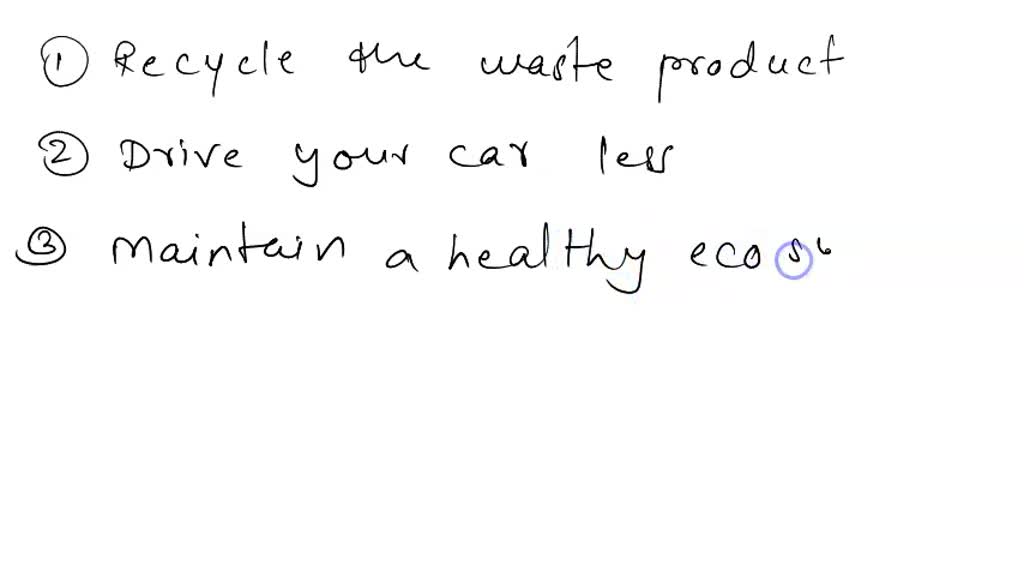 ① Recycle the waste product
② Drive your car less
③ maintain a healthy ecos